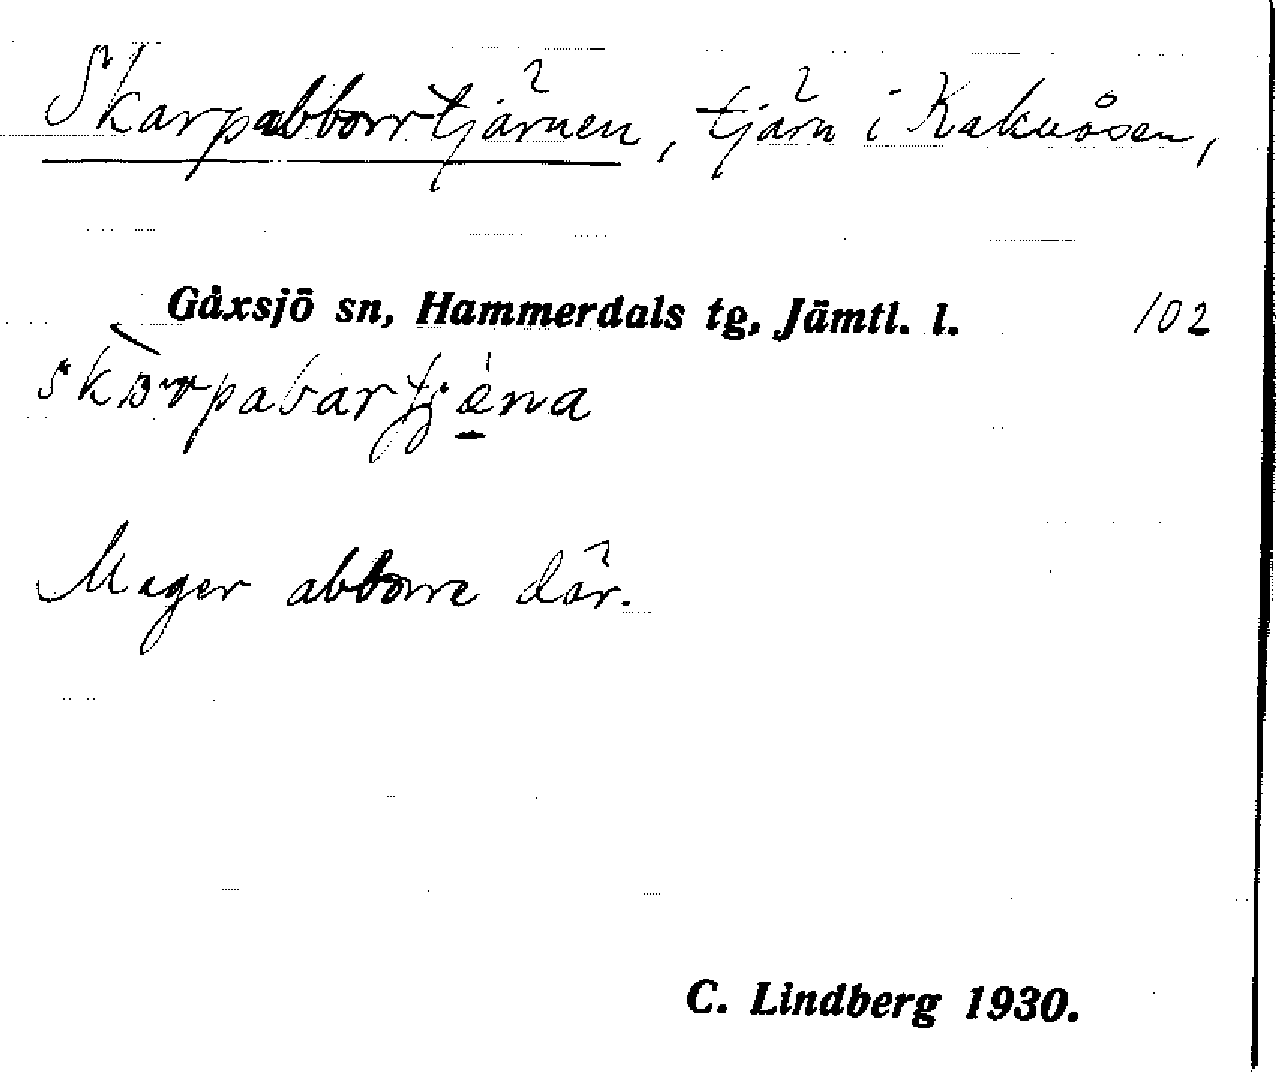 Skarpabborrtjärnen, tjärn i Kakuåsen,
Gåxsjö sn, Hammerdals tg, Jämtl. l. 102
Mager abborre där.
C. Lindberg 1930.